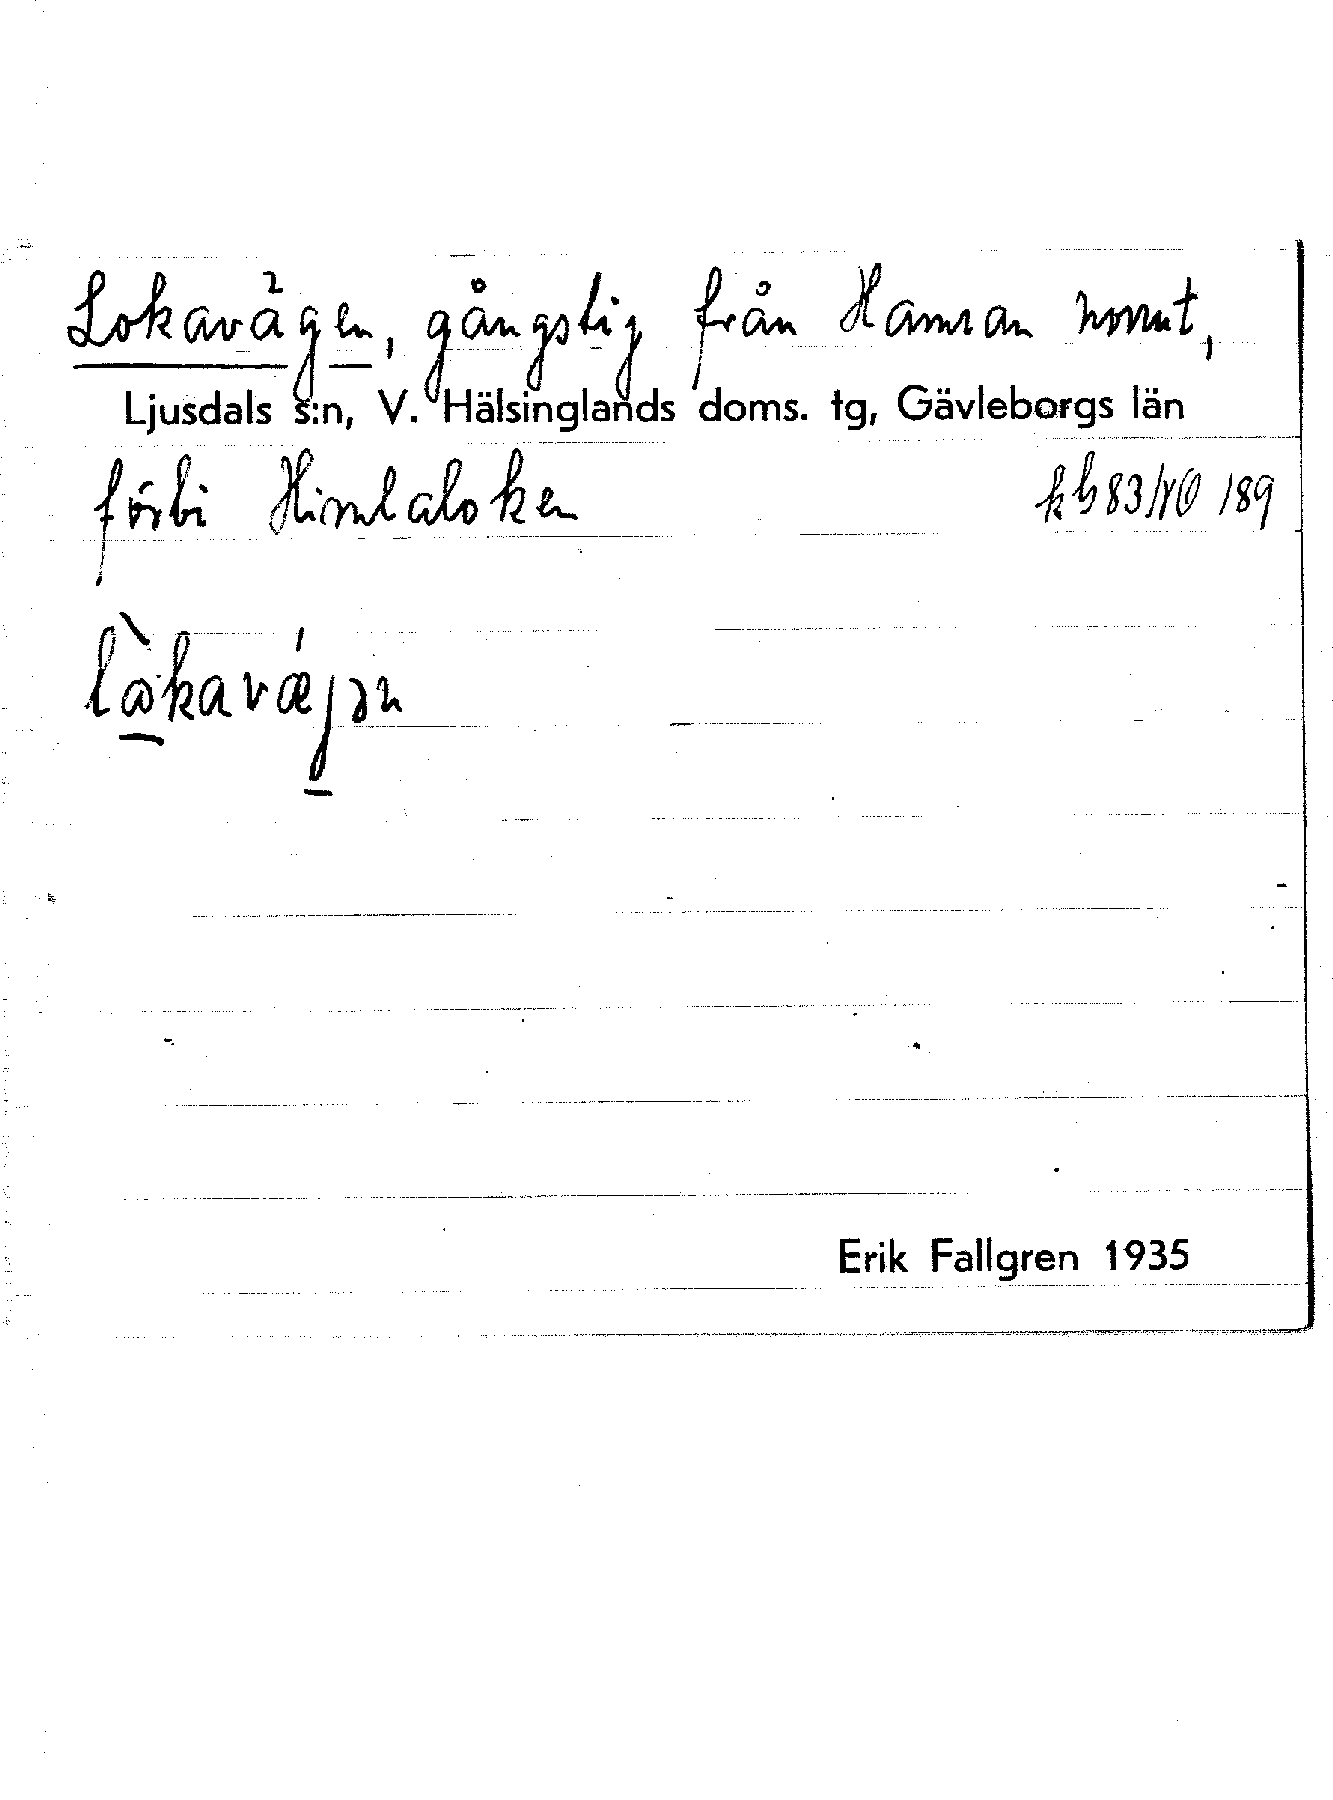 Lokavägen, gångstig från Hamran norrut,
Ljusdals s:n, V. Hälsinglands doms. tg, Gävleborgs län
förbi Himlaloken kb 83/NO 189
Erik Fallgren 1935